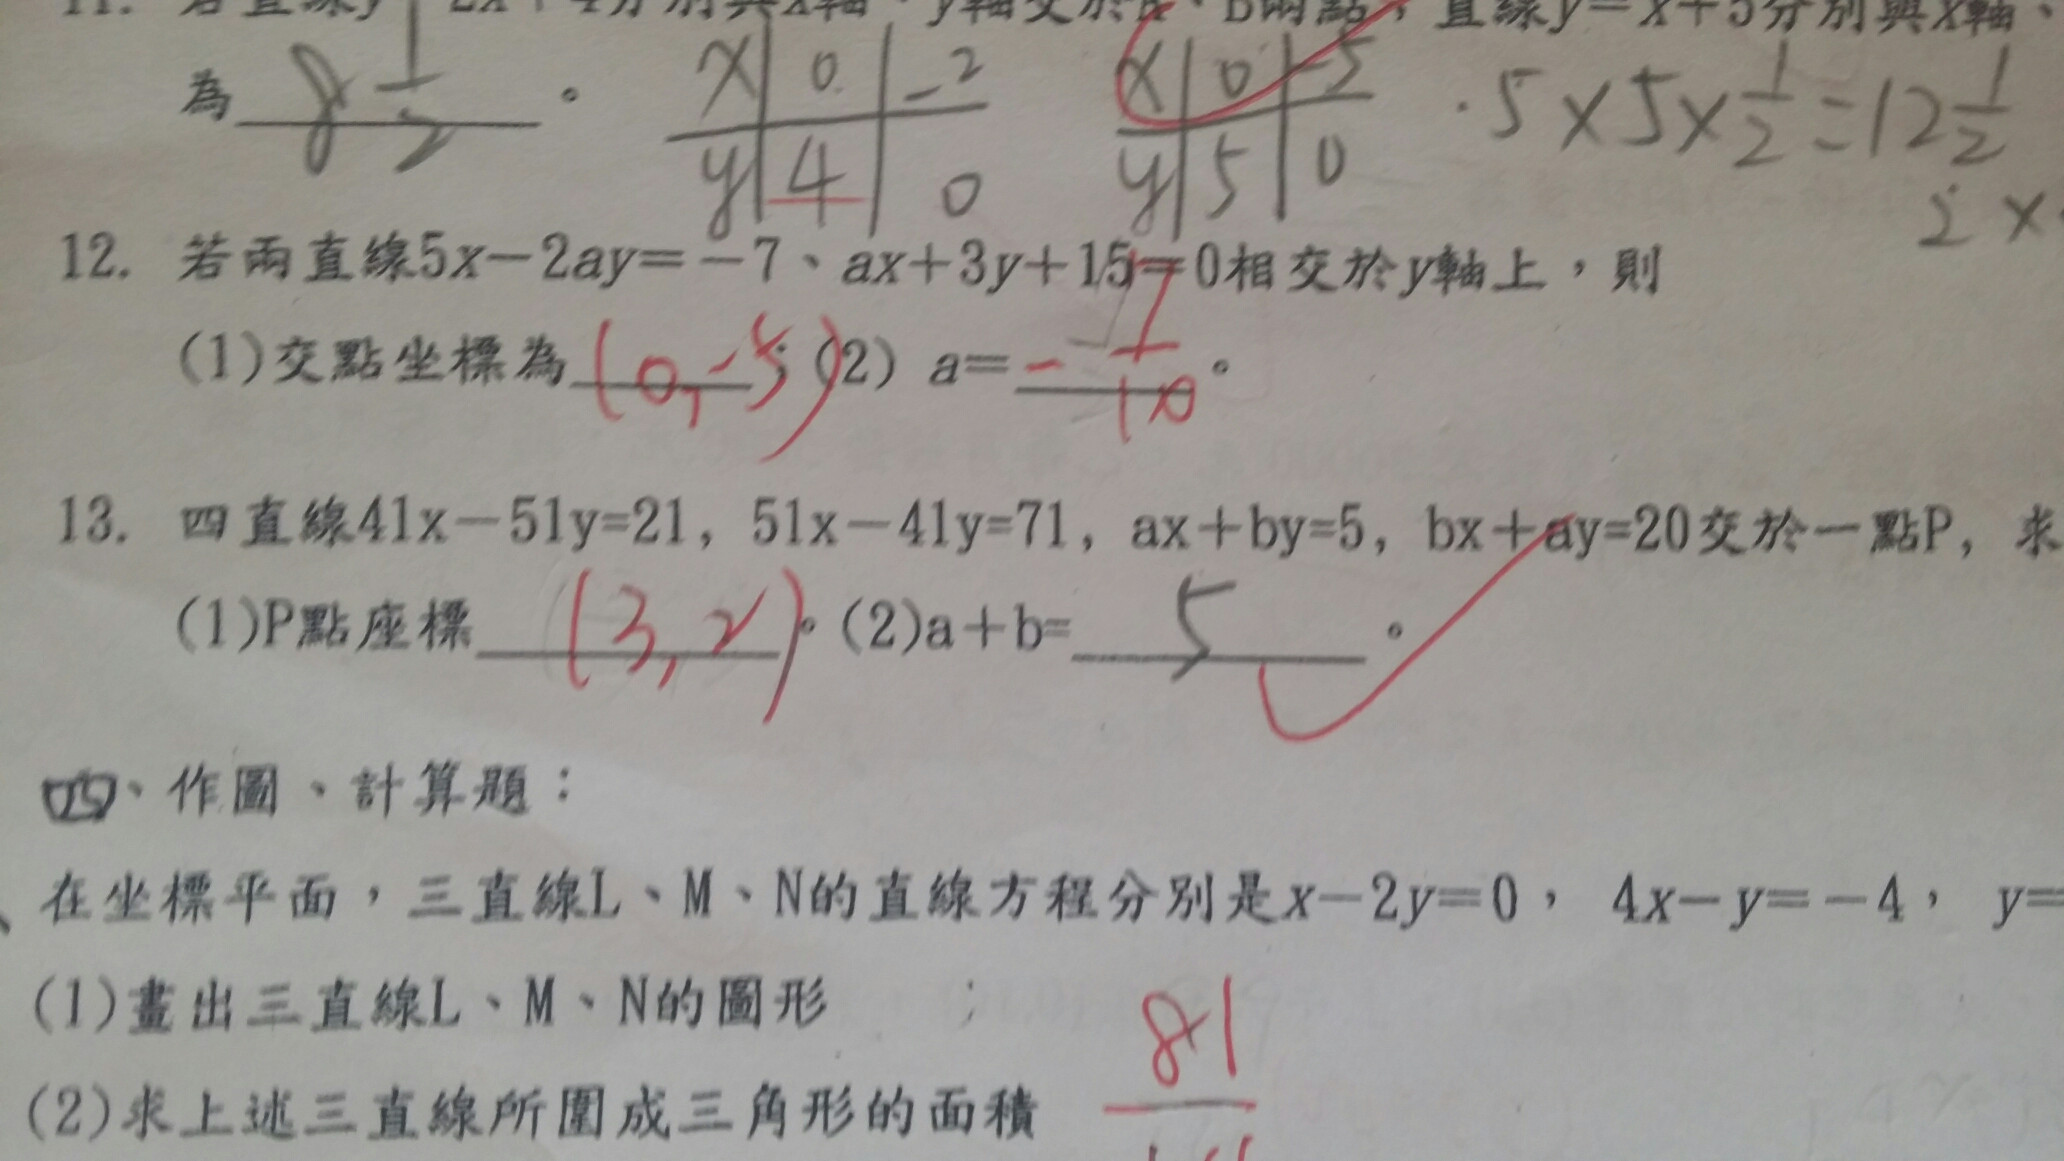 11. 若直線y=2x+4分別與x軸、y軸交於A、B兩點,直線y=x+5分別與x軸、
為 8 1/2 。
x 0 -2
y 4 0
x 0 -5
y 5 0
5×5×1/2=12 1/2
2×
12. 若兩直線5x-2ay=-7、ax+3y+15=0相交於y軸上,則
(1)交點坐標為(0,-5);(2) a=-7/10。
13. 四直線41x-51y=21, 51x-41y=71, ax+by=5, bx+ay=20交於一點P, 求
(1)P點座標(3,2)。(2)a+b=5。
四、作圖、計算題:
、在坐標平面,三直線L、M、N的直線方程分別是x-2y=0, 4x-y=-4, y=
(1)畫出三直線L、M、N的圖形 ;
(2)求上述三直線所圍成三角形的面積 81